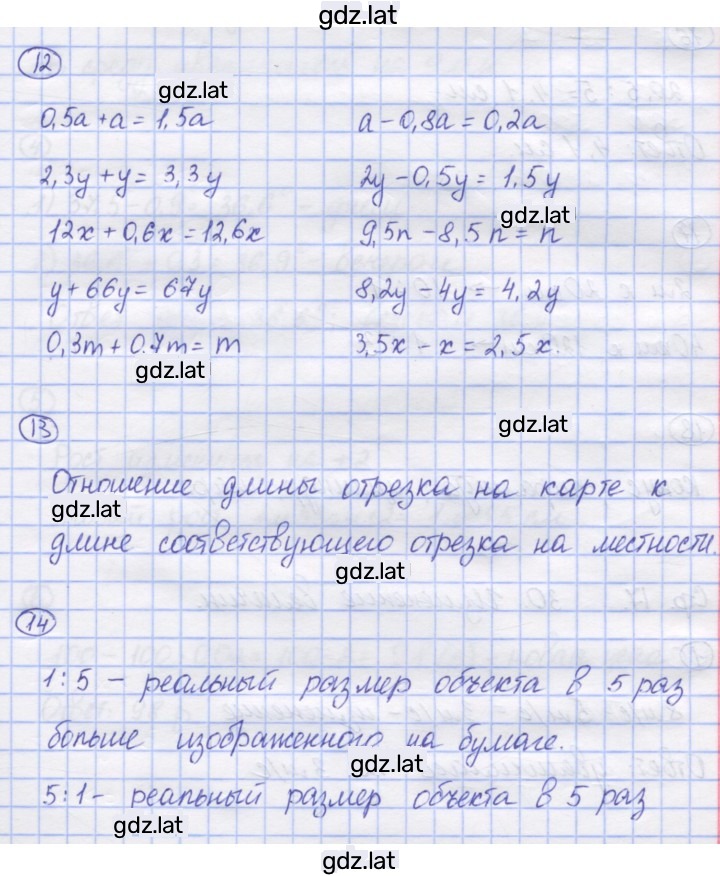 gdz.lat
12
gdz.lat
0,5a + a = 1,5a a - 0,8a = 0,2a
2,3y + y = 3,3y 2y - 0,5y = 1,5y
gdz.lat
12x + 0,6x = 12,6x 9,5n - 8,5n = n
y + 66y = 67y 8,2y - 4y = 4,2y
0,3m + 0.7m = m 3,5x - x = 2,5x.
gdz.lat
13
gdz.lat
Отношение длины отрезка на карте к
gdz.lat
длине соответствующего отрезка на местности.
gdz.lat
14
1:5 – реальный размер объекта в 5 раз
больше изображенного на бумаге.
gdz.lat
5:1 - реальный размер объекта в 5 раз
gdz.lat
gdz.lat